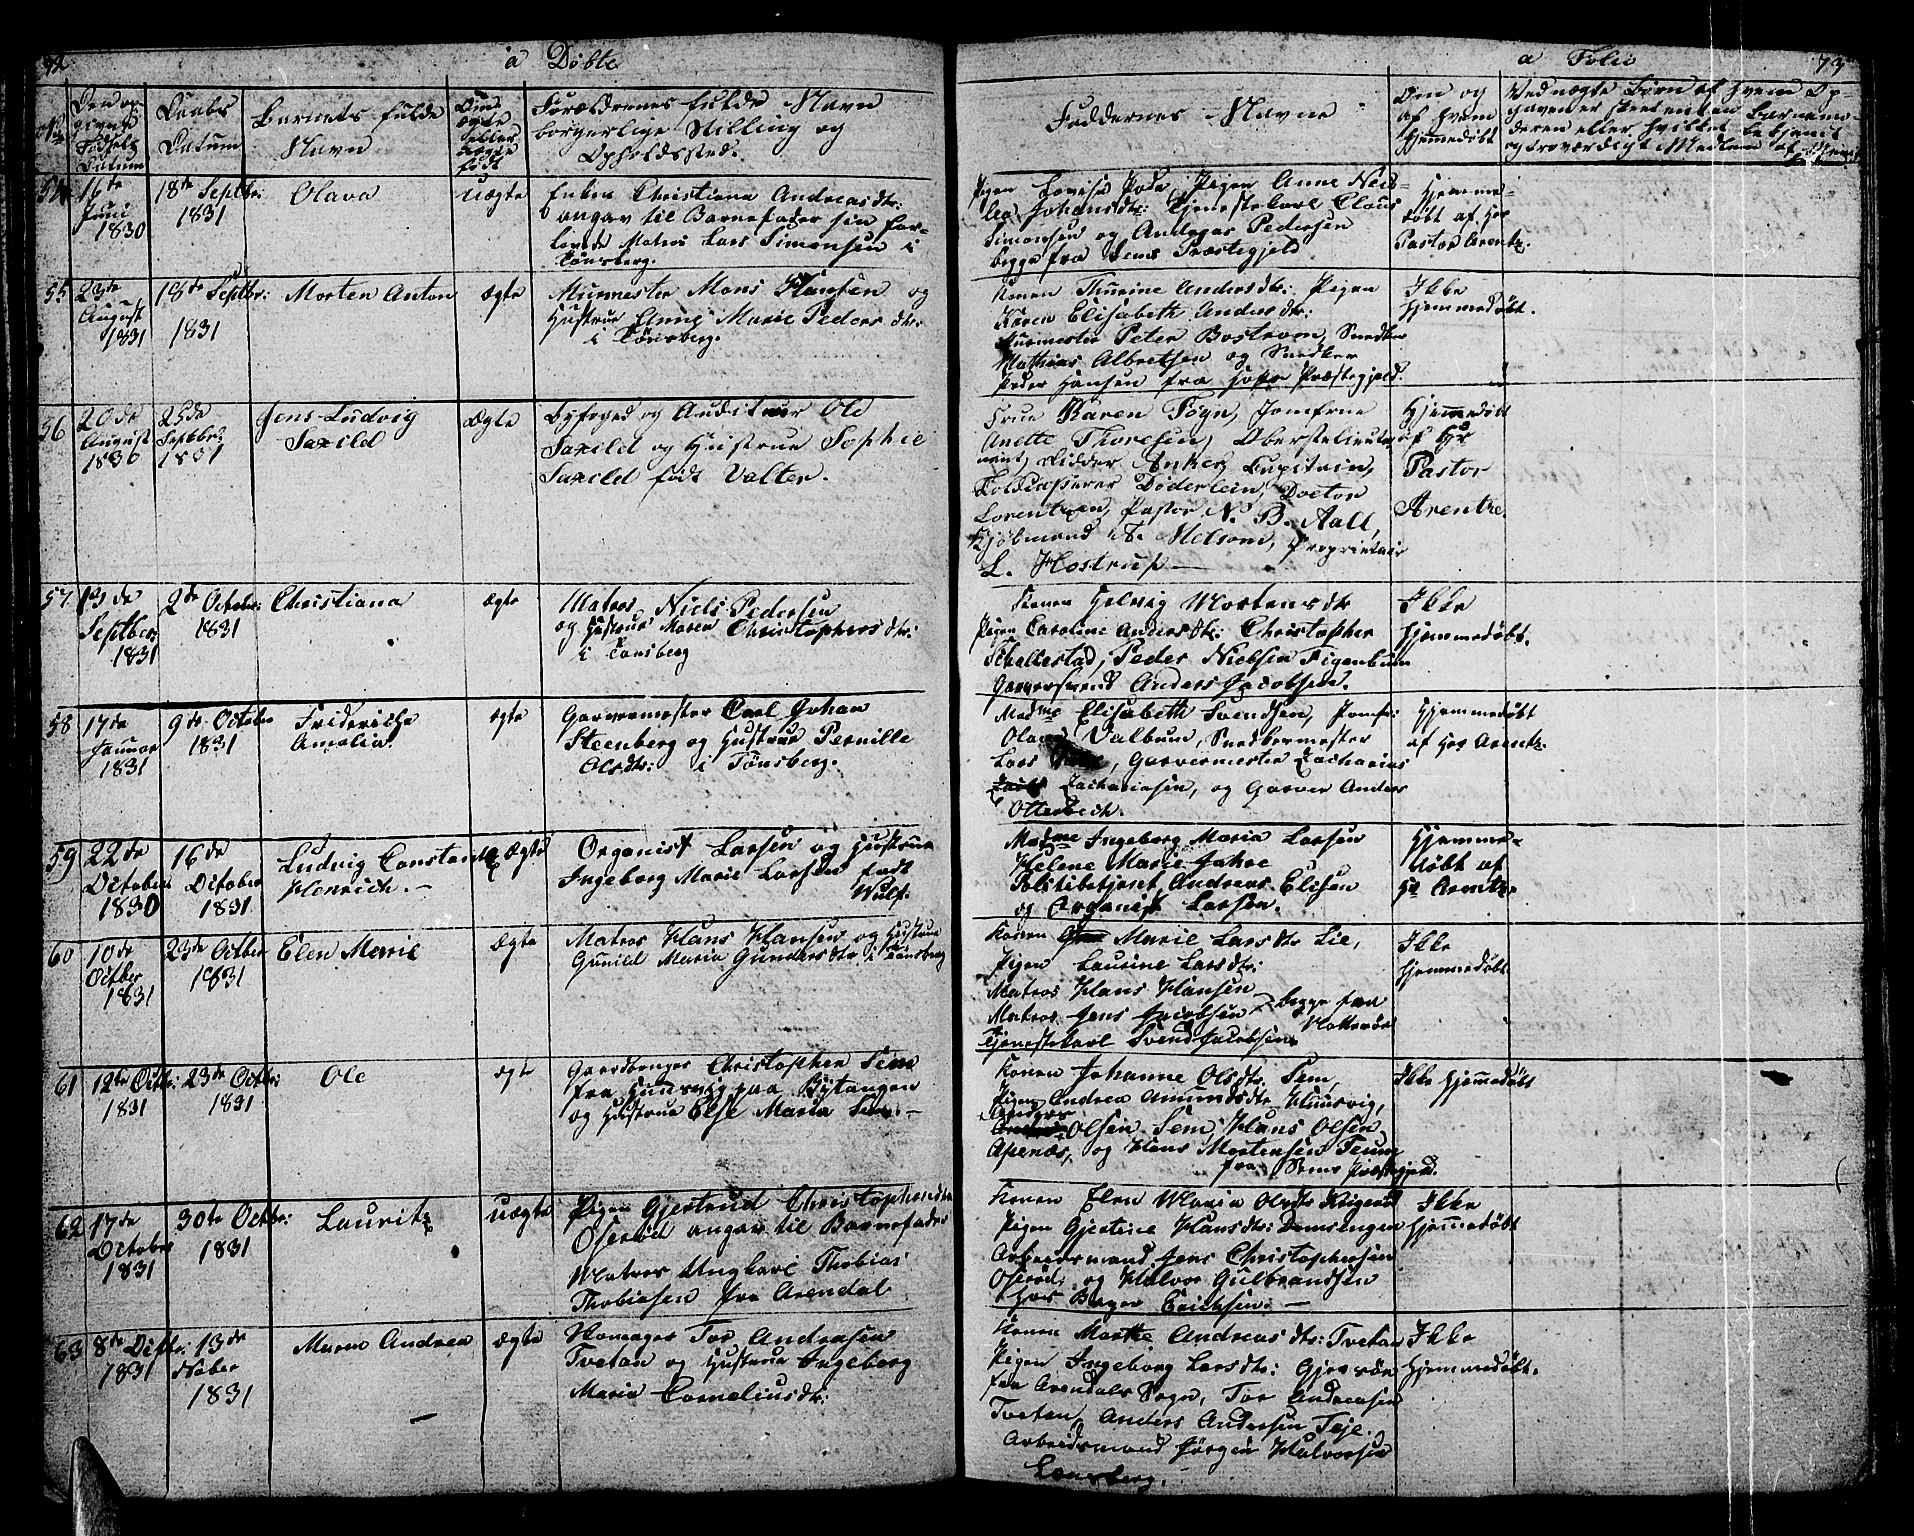 72
a Døbte
No
Den op-
givne
Fødsels
Datum
Daabs
Datum
Barnets fulde
Navn
Om
ægte
eller
uægte
født
Forældrenes fulde Navn
borgerlige Stilling og
Opholdssted.
54
16de
Juni
1830
18de Septbr:
1831
Olava
uægte
Enken Christiana Andreasdtr:
angav til Barnefader sin for-
lovede Matros Lars Simonsen i
Tønsberg.
55
23de
August
1831
18de Septbr:
1831
Morten Anton
ægte
Murmester Mons Hansen og
Hustrue Anne Marie Peders dtr:
i Tønsberg.
56
20de
August
1830
25de
Septbr:
1831
Jens Ludvig
Saxild
Ægte
Byfoged og Auditeur Ole
Saxild og Hustrue Sophie
Saxild født Valter.
57
13de
Septbr:
1831
2de October:
1831
Christiana
ægte
Matros Niels Pedersen
og Hustrue Maren Christophersdtr:
i Tønsberg
58
17de
Januar
1831
9de October
1831
Friderikke
Amalia.
ægte
Garvermester Carl Johan
Steenberg og Hustrue Pernille
Olsdtr: i Tønsberg.
59
22de
October
1830
16de
October
1831
Ludvig Constant
Henrich. –
Ægte
Organist Larsen og Hustrue
Ingeborg Marie Larsen født
Wulf.
60
10de
Octber
1831
23de Octber
1831
Elen Marie
Ægte
Matros Hans Hansen og Hustrue
Gunild Maria Gundersdtr i Tønsberg
61
12te Octbr:
1831
23de Octbr:
1831
Ole
ægte
Gaardbruger Christopher Sem
fra Huusvig paa Bytangen
og Hustrue Else Maria Sem. –
62
17de
October
1831
30te Octbr:
1831
Lauritz
uægte
Pigen Gjertrud Christophersdtr
Oserød angav til Barnefader
Matros Ungkarl Thobias
Thobiasen fra Arendal
63
8de Octbr:
1831
13de
Nober
1831
Maren Andrea
ægte
Tor Andreasen
Tvetan og Hustrue Ingeborg
Maria Corneliusdtr:
a Folio
73
Faddernes Navne
Om og
af hvem
hjemmedøbt
Ved uægte Børn af hvem Op-
gaven er skeet enten Barnemo-
deren eller hvilket bekjendt
og troværdigt Medlem af
Pigen Lovise Pode Pigen Anne
Johansdtr: Tjenestekarl Claus
Simonsen og Andreas Pedersen
begge fra Sems Præstegjeld
Hjemme-
døbt af Hr
Pastor Arentz.
Konen Thurine Andersdtr: Pigen
Karen Elisabeth Andersdtr:
Murmester Peter Bostrøm, Snedker
Mathias Albretsen og Snedker
Peder Hansen fra Præstegjeld.
Ikke
hjemmedøbt.
Frue Baren Fogn, Jomfrue
Anette Thoresen, Oberstlieute-
nant, Ridder Anker, Capitain,
Toldcasserer Døderlein, Doctor
Lorentzen, Pastor N. B. Aall,
Kjøbmand F. Melsom, Proprietair
L. Hostrup –
Hjemmedøbt
af Hr
Pastor
Arentz.
Konen Helvig Mortensdtr
Pigen Caroline Andersdtr: Christopher
Schallestad, Peder Nielsen Figenbaum
Garversvend Anders Jacobsen.
Ikke
hjemmedøbt.
Madme Elisabeth Svendsen, Jomfr:
Valbum, Snedkermester
Lars, Garvermester Zacharias
Zachariasen, og Garver Anders
Otterbech.
Hjemmedøbt
af Hr Arentz.
Madme Ingeborg Maria Larsen
Helene Marie Jahre
Politibetjent Andreas Elisen
og Organist Larsen.
Hjemme-
døbt af
Hr Arentz
Konen Marie Larsdtr Lie,
Pigen Laurine Larsdtr:
Matros Hans Hansen
Matros Jens Jacobsen begge fra
Nøtterøe
Tjenestekarl Svend Jacobsen
Ikke
hjemmedøbt
Konen Johanne Olsdtr: Sem,
Pigen Andrea Amundsdtr Huusvig,
Anders
Olsen Sem, Hans Olsen
Apenæs, og Hans Mortensen Teum
fra Sems Præstegjeld.
Ikke hjemmedøbt
Konen Elen Maria Olsdtr
Pigen Gjertine Hansdtr:
Arbeidsmand Jens Christophersen
Oserød, og Halvor Gulbrandsen
hos Bager Erichsen. –
Ikke
hjemmedøbt
Konen Marthe Andreasdtr: Tvetan
Pigen Ingeborg Larsdtr:
fra Arendals Sogn, Tor Andreasen
Tvetan, Anders Andersen Teje.
Arbeidsmand Jørgen Halvorsen
Tønsberg.
Ikke
hjemmedøbt.